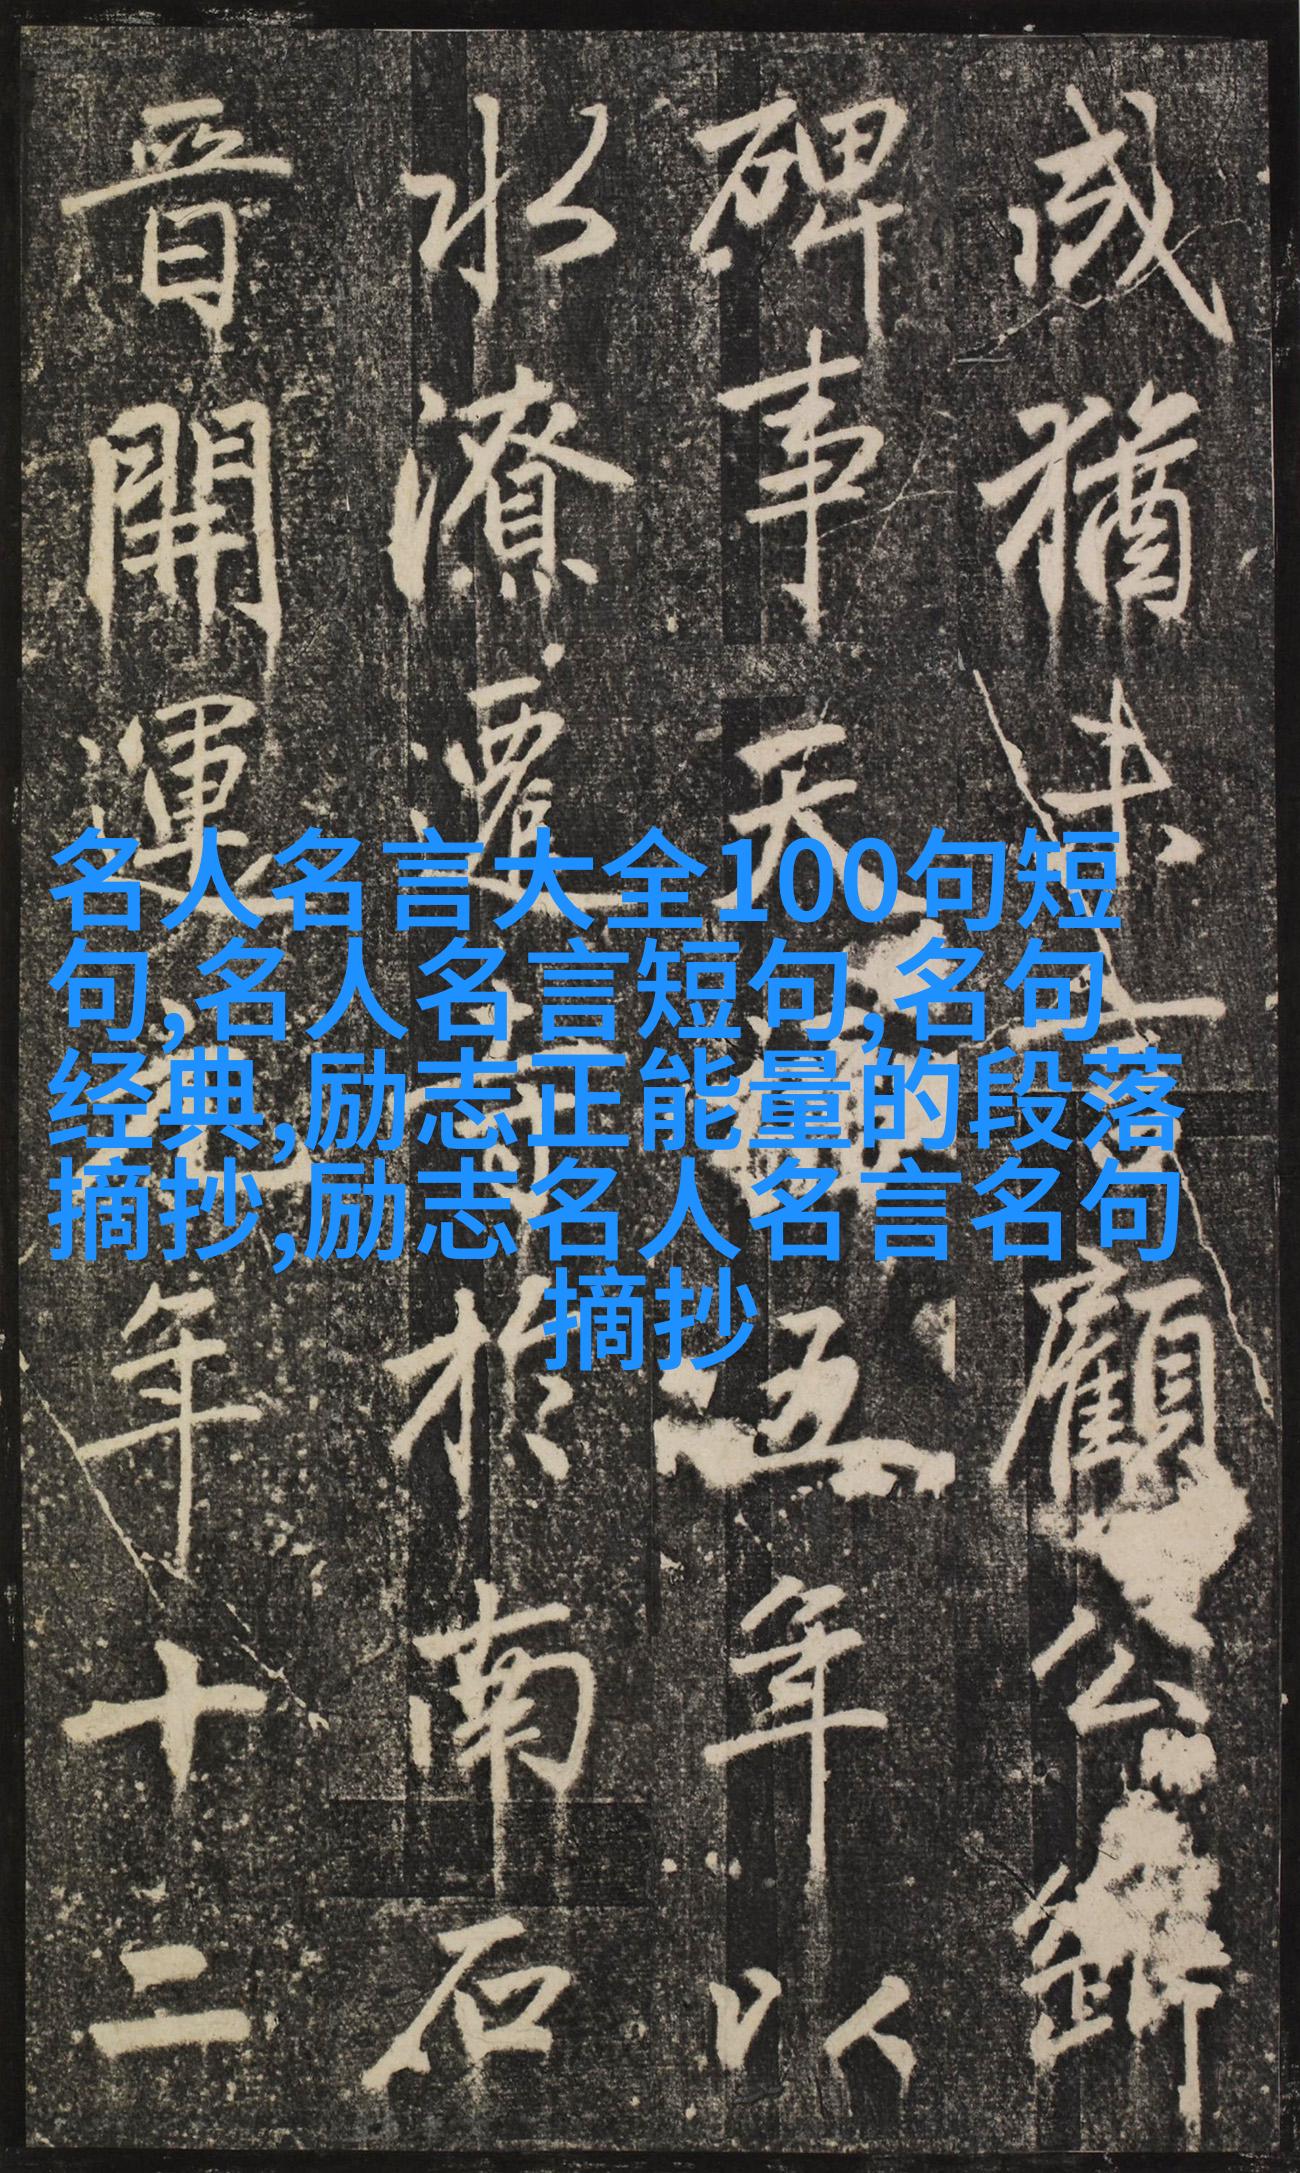 咸猶未顧公
碑事天五年以
水潦遷於南石
晉開運年十二
名人名言大全100句短
句,名人名言短句,名句
经典,励志正能量的段落
摘抄,励志名人名言名句
摘抄